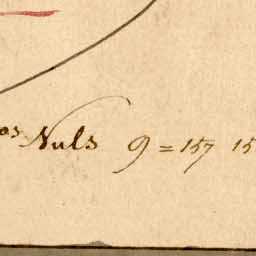 os Nuls 9 = 157 15